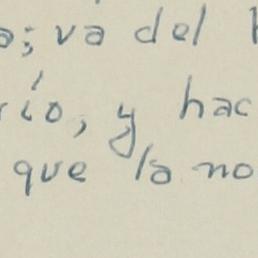 a; va del
río, y hac
que la no